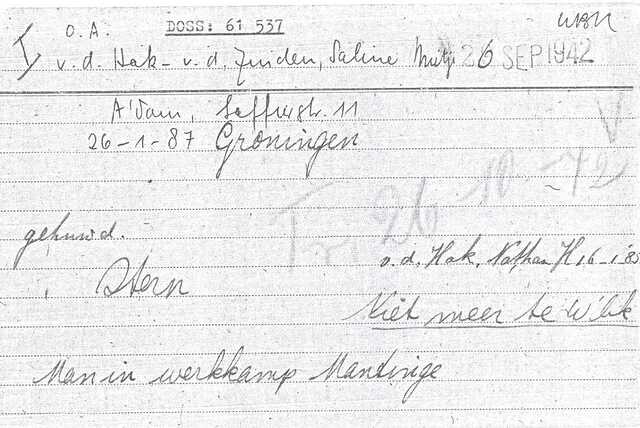 O.A. DOSS: 61 537
v.d. Hak - v.d. Zuiden, Saline 26 SEP 1942
A'dam, Saffierstr. 11
26-1-87 Groningen
Tr. 26-10-42
gehuwd.
v.d. Hak, Nathan H 16-1-8
Stern
Niet meer te W'bk
Man in werkkamp Mantinge